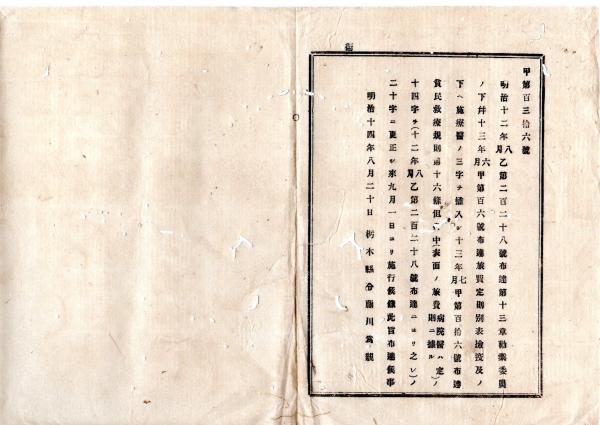 甲第百三拾六號
明治十二年八月乙第二百二十八號布達第十三章勸業委員
ノ下幷十三年六月甲第百六號布達旅費定則別表檢疫及ノ
下ヘ施療醫ノ三字ヲ插入シ十三年七月甲第百拾六號布達
貧民救療規則第十六條但シ中表面ノ旅費(病院醫ハ定則ニ據ル)ノ
十四字ヲ(十二年八月乙第二百二十八號布達ニヨリ之レ)ノ
二十字ニ更正シ來九月一日ヨリ施行候條此旨布達候事
明治十四年八月二十日 栃木縣令藤川爲親